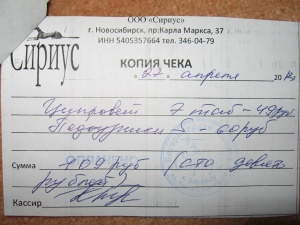 ООО «Сириус»
г. Новосибирск, пр. Карла Маркса, 37
ИНН 5405357664 тел. 346-04-79
Сириус
КОПИЯ ЧЕКА
22 апреля 20
Ципровет 7 таб - 49 руб
Подгузники S - 60 руб
Сумма 109 руб (сто девять
рублей)
Кассир